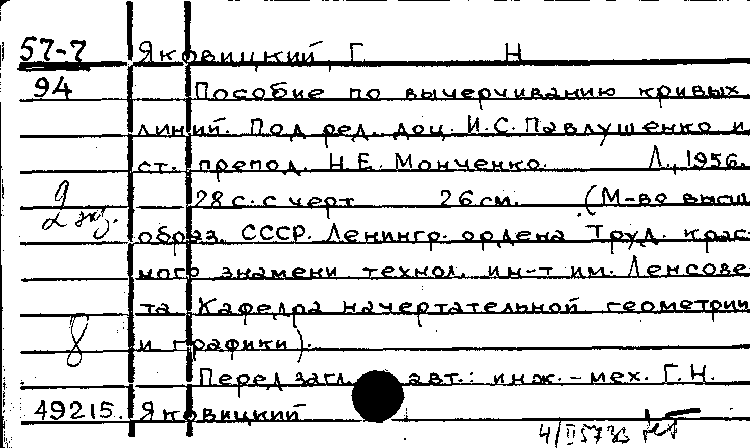 57-7 Яковицкий, Г. Н.
94 Пособие по вычерчиванию кривых
линий. Под ред. доц. И.С. Павлушенко и
ст. препод. Н.Е. Монченко. Л., 1956.
28 с. с черт 26 см. (М-во высш
2 экз.
образ. СССР. Ленингр. ордена Труд. крас-
ного знамени технол. ин-т им. Ленсове-
та Кафедра начертательной геометрии
8 и графики).
Перед загл. авт.: инж.-мех. Г.Н.
49215. Яковицкий